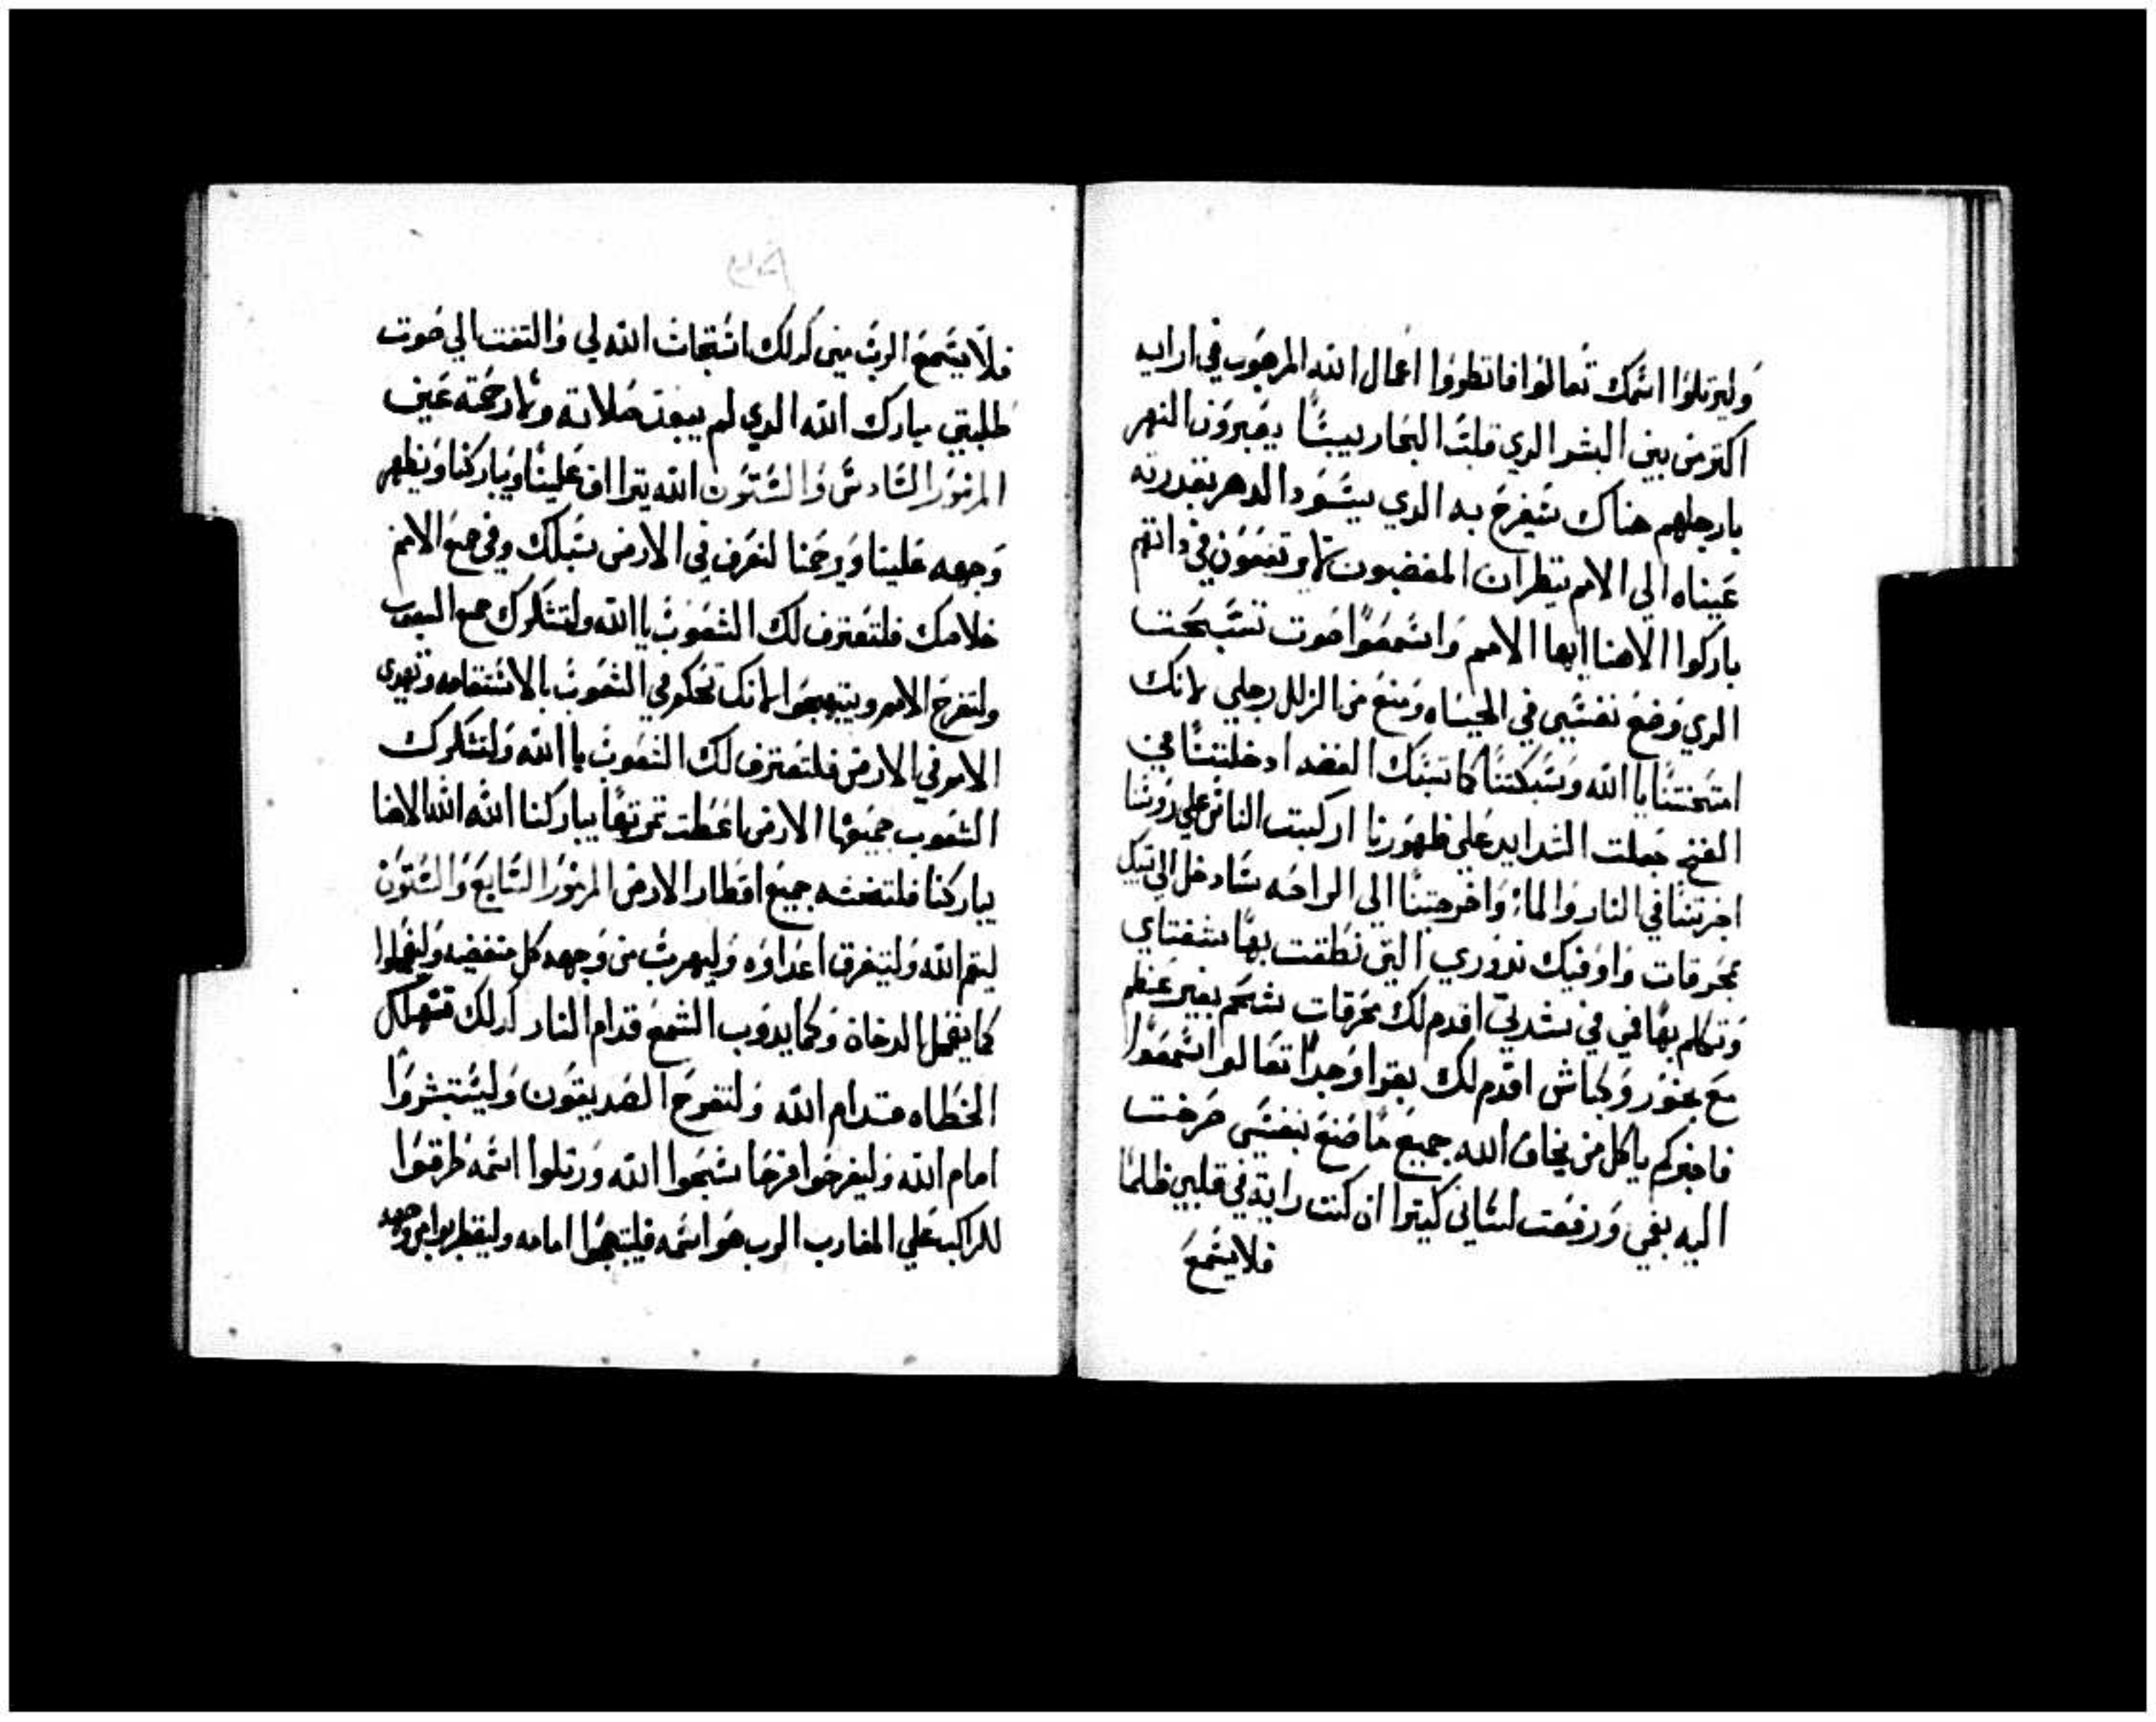 وليرتلوا اسمك تعالوا فانظروا اعمال الله المرهوب في ارايه
اكتر من بني البشر الدي قلب البحار يبسًا يعبرون النهر
بارجلهم هناك نفرح به الدي يسود الدهر بقدرته
عيناه الي الامم ينظران المغضبون لا يرتفعون في داتهم
باركوا الاهنا ايها الامم واسمعوا صوت تسبحته
الدي وضع نفسي في الحياه ومنع من الزلل رجلي لانك
امتحنتنا يا الله وسبكتنا كما تسبك الفضه ادخلتنا في
الفخ جعلت الشدايد علي ظهورنا اركبت الناس علي روسنا
اجزتنا في النار والماء واخرجتنا الي الراحه سادخل الي بيتك
بمحرقات واوفيك ندوري التي نطقت بها شفتاي
وتكلم بها فمي في شدتي اقدم لك محرقات شحم بغير عظم
مع بخور وكباش اقدم لك بقرا وجدًا تعالوا اسمعوا
فاخبركم يا كل من يخاف الله جميع ما صنع بنفسي صرخت
اليه بفمي ورفعت لساني كتيرا ان كنت رايت في قلبي ظلمًا
فلا يسمع
فلا يسمع الرب مني كدلك استجاب الله لي والتفت الي صوت
طلبتي مبارك الله الدي لم يبعد صلاته ولا رحمته عني
المزمور السادس والستون الله يتراف علينا ويباركنا ويظهر
وجهه علينا ويرحمنا لنعرف في الارض سبلك وفي جميع الامم
خلاصك فلتعترف لك الشعوب يا الله ولتشكرك جميع الشعوب
ولتفرح الامم ويبتهجوا لانك تحكم في الشعوب بالاستقامه وتهدي
الامم في الارض فلتعترف لك الشعوب يا الله ولتشكرك
الشعوب جميعها الارض اعطت تمرتها يباركنا الله الله الاهنا
يباركنا فلتخشه جميع اقطار الارض المزمور السابع والستون
ليقم الله ولتتفرق اعداوه وليهرب من وجهه كل مبغضيه وليضمحلوا
كما يضمحل الدخان وكما يدوب الشمع قدام النار كدلك تهلك
الخطاه قدام الله ولتفرح الصديقون وليستبشروا
امام الله وليفرحوا فرحًا سبحوا الله ورتلوا اسمه طرقوا
للراكب علي المغارب الرب هو اسمه فليبتهجوا امامه وليضطربوا من وجهه